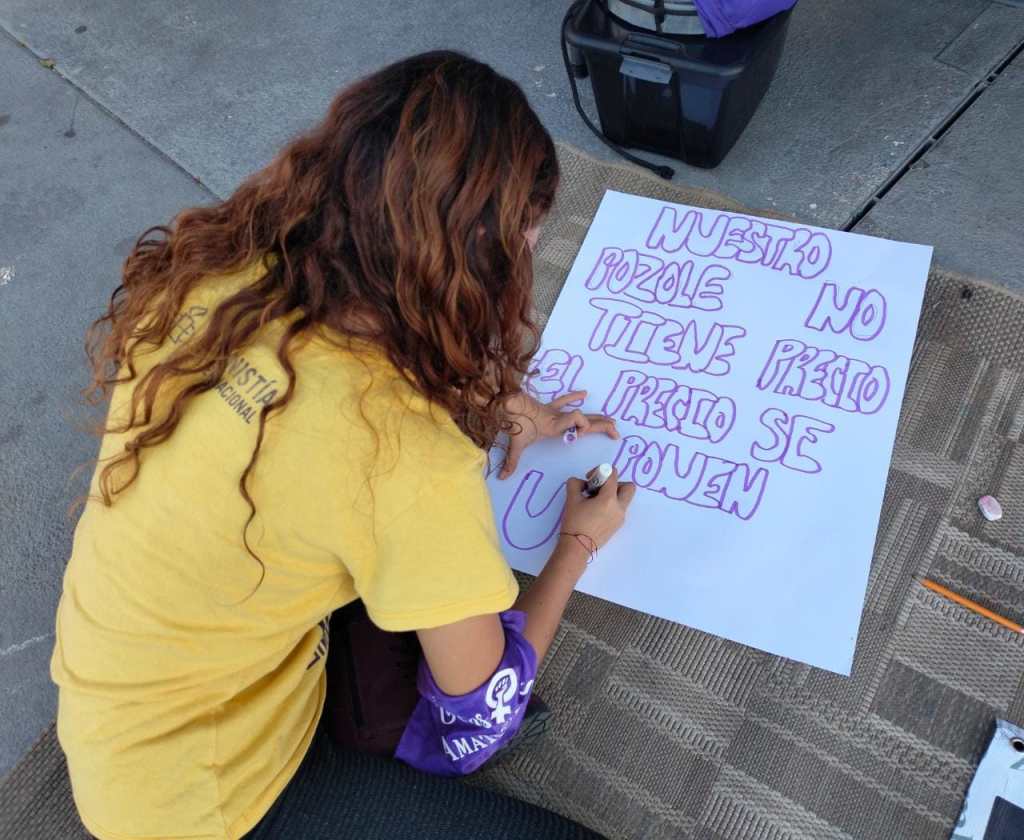 NUESTRO
POZOLE NO
TIENE PRECIO
EL PRECIO SE
PONEN
U
NISTÍA
ACIONAL
AMA